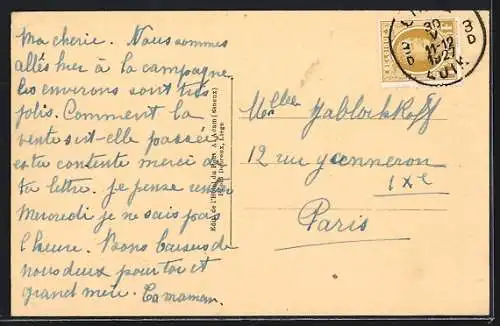 Ma cherie. Nous sommes
allés hier à la campagne
les environs sont très
jolis. Comment la
vente s'est-elle passée
es tu contente merci de
ta lettre. je pense venir
Mercredi je ne sais pas
l'heure. Bons baisers de
nous deux pour toi et
grand mère. Ta maman.
Edit. de l'Hôtel du Pont A. Adam
Desreux, Liége
30
V
11-12
1927
3
D
3
D
LUIK
Melle Yablochkoff
12 rue Yvonneron
IXe
Paris